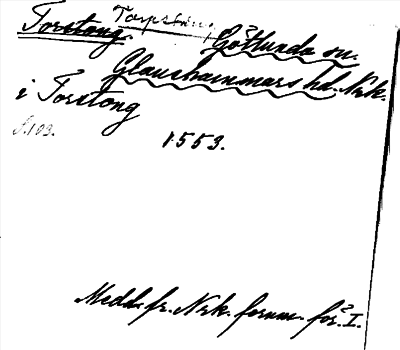 Torstong. Torpstång, Götlunda sn.
Glanshammars hd. Nrk.
i Torstong
s. 103.
1553.
Medd. fr. Nrk. fornm. för. I.